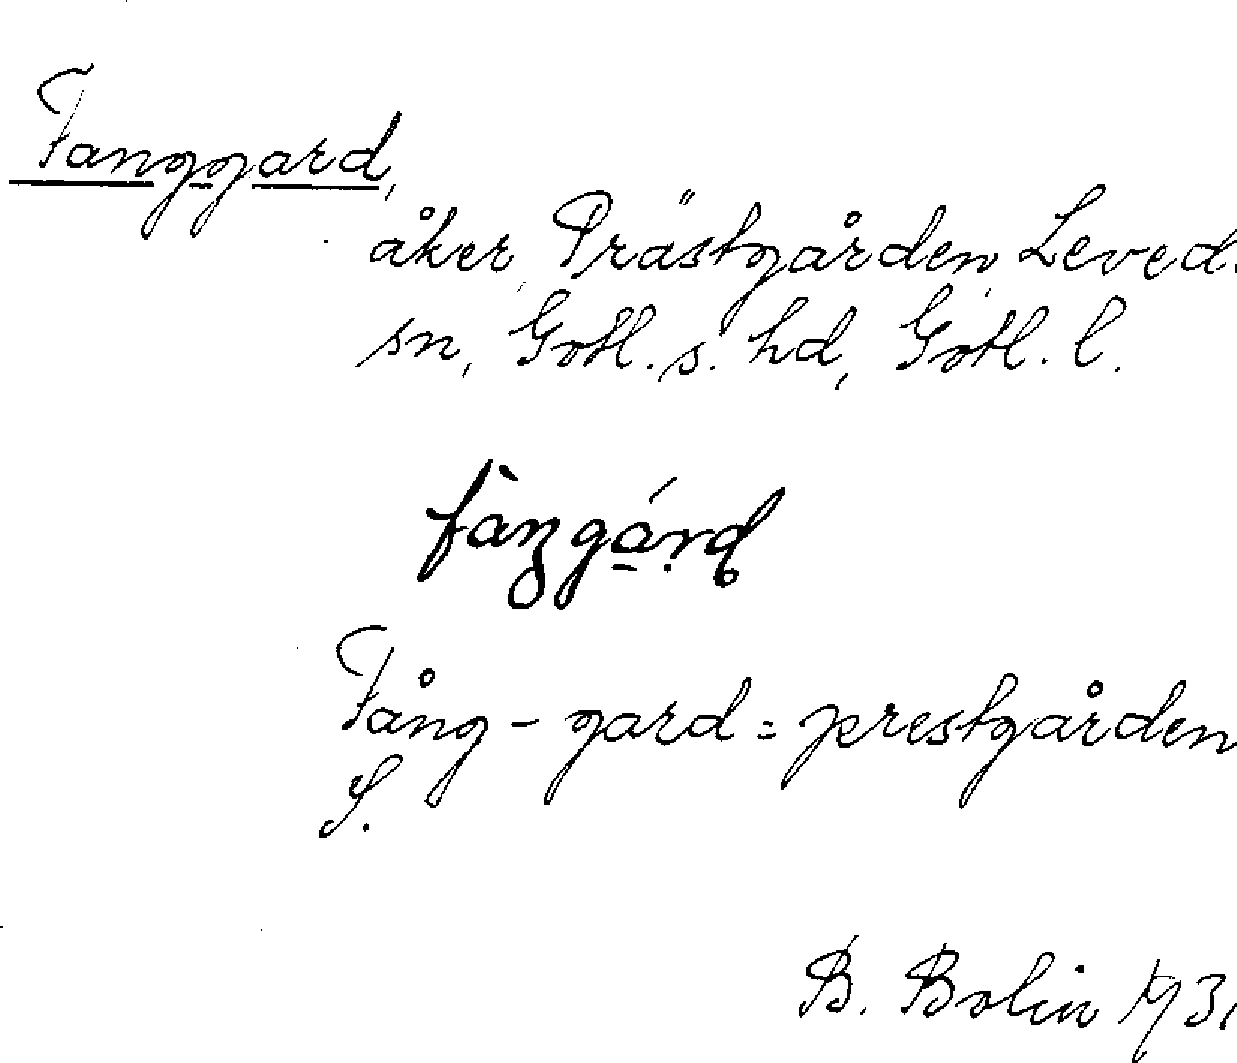 Fanggard,
åker, Prästgården, Levede
sn, Gotl. s. hd, Gotl. l.
fàŋgárd
Fång-gard = prestgården
S.
B. Bolin 1931